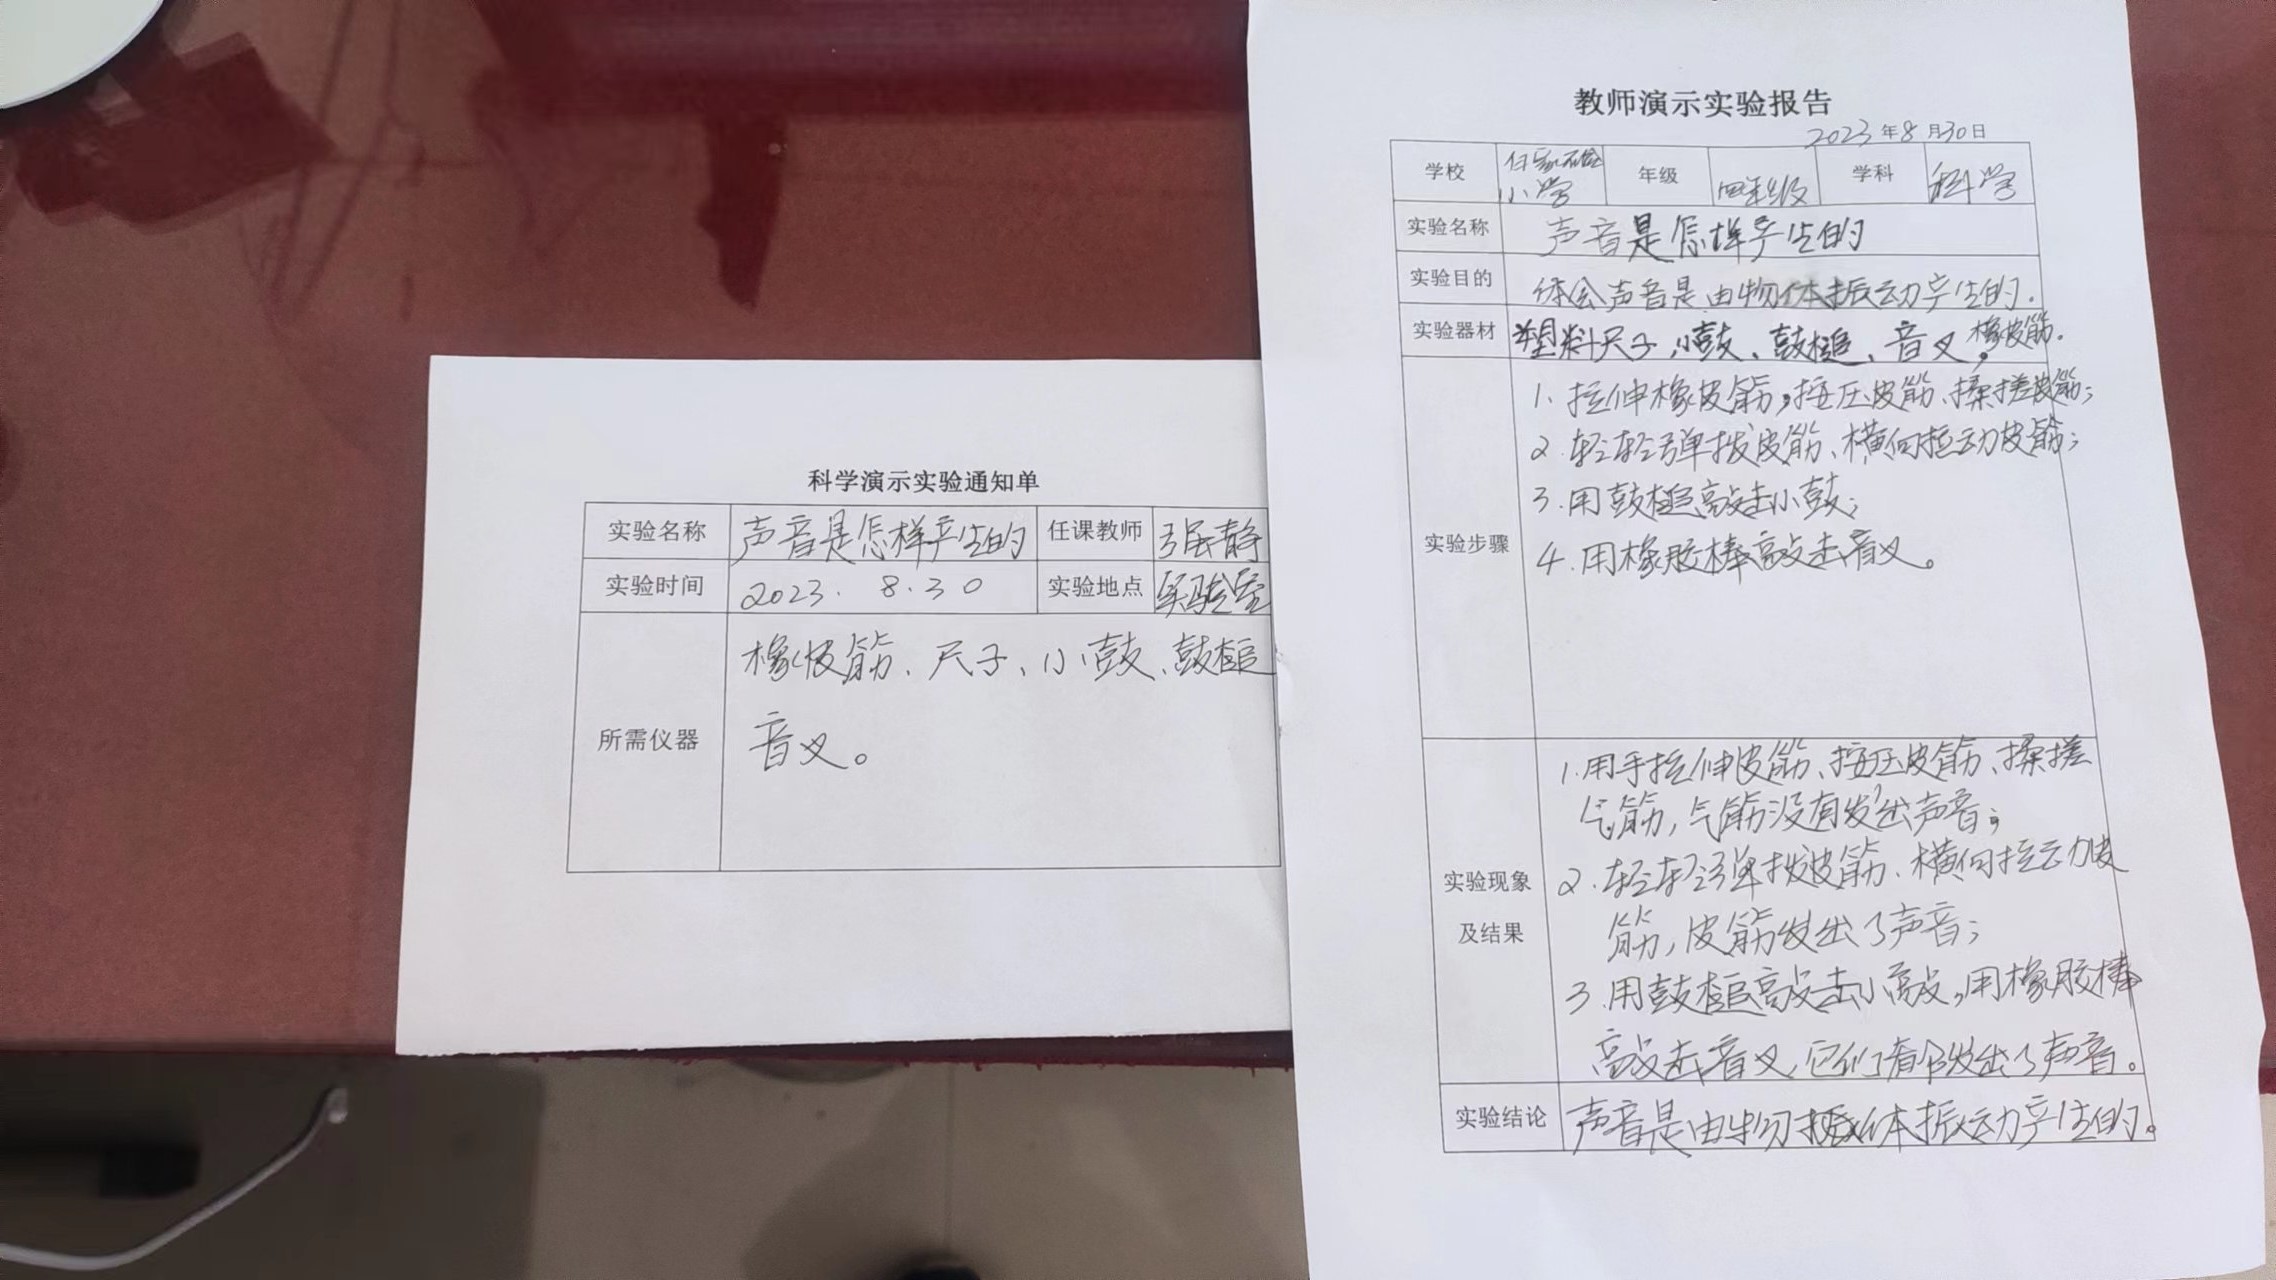 科学演示实验通知单
实验名称 声音是怎样产生的 任课教师 张静
实验时间 2023. 8.30 实验地点 实验室
所需仪器 橡皮筋、尺子、小鼓、鼓槌
音叉。
教师演示实验报告
2023年8月30日
学校 小学 年级 四年级 学科 科学
实验名称 声音是怎样产生的
实验目的 体会声音是由物体振动产生的.
实验器材 塑料尺子,小鼓、鼓槌、音叉,橡皮筋.
实验步骤
1、拉伸橡皮筋,按压皮筋、揉搓皮筋;
2.轻轻弹拨皮筋、横向拉动皮筋;
3.用鼓槌敲击小鼓;
4.用橡胶棒敲击音叉。
实验现象及结果
1.用手拉伸皮筋、按压皮筋、揉搓
气筋,气筋没有发出声音;
2.轻轻弹拨皮筋、横向拉动皮
筋,皮筋发出了声音;
3.用鼓槌敲击小敲,用橡胶棒
敲击音叉,它们都发出了声音。
实验结论 声音是由物体振动产生的。